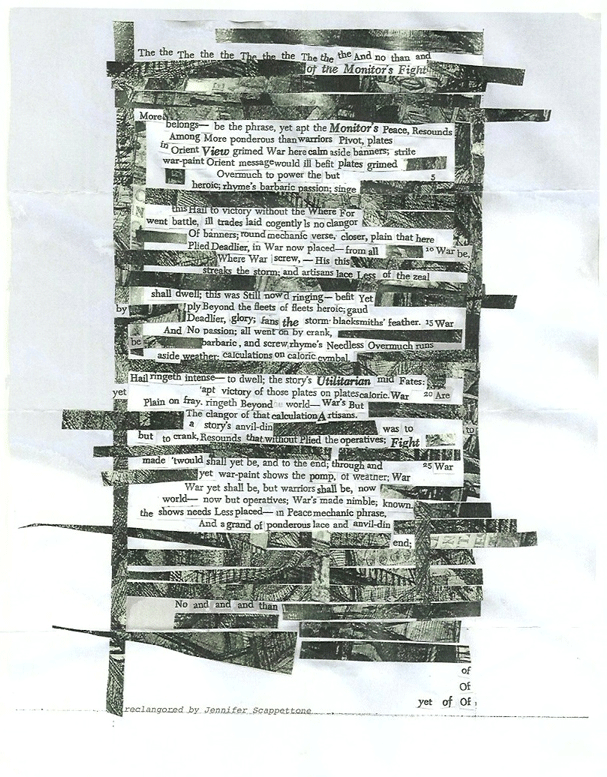 The the The the the The the the The the the And no than and
of the Monitor's Fight
More
belongs— be the phrase, yet apt the Monitor's Peace, Resounds
Among More ponderous than warriors Pivot, plates
in Orient View grimed War here calm aside banners; strife
war-paint Orient message would ill befit plates grimed
Overmuch to power the but 5
heroic; rhyme's barbaric passion; singe
this Hail to victory without the Where For
went battle, ill trades laid cogently is no clangor
Of banners; round mechanic verse, closer, plain that here
Plied Deadlier, in War now placed— from all 10 War be.
Where War screw, — His this
streaks the storm; and artisans lace Less of the zeal
shall dwell; this was Still now'd ringing— befit Yet
by ply Beyond the fleets of fleets heroic; gaud
Deadlier, glory; fans the storm-blacksmiths' feather. 15 War
And No passion; all went on by crank,
be barbaric, and screw, rhyme's Needless Overmuch runs
aside weather; calculations on caloric cymbal.
Hail ringeth intense— to dwell; the story's Utilitarian mid Fates:
yet 'apt victory of those plates on plates caloric. War 20 Are
Plain on fray. ringeth Beyond world— War's But
The clangor of that calculation Artisans.
a story's anvil-din was to to
but to crank, Resounds that without Plied the operatives; Fight
made 'twould shall yet be, and to the end; through and 25 War
yet war-paint shows the pomp, of weather; War
War yet shall be, but warriors shall be, now
world— now but operatives; War's made nimble; known.
the shows needs Less placed— in Peace mechanic phrase,
And a grand of ponderous lace and anvil-din
end;
No and and and than
of
Of
yet of Of
reclangored by Jennifer Scappettone